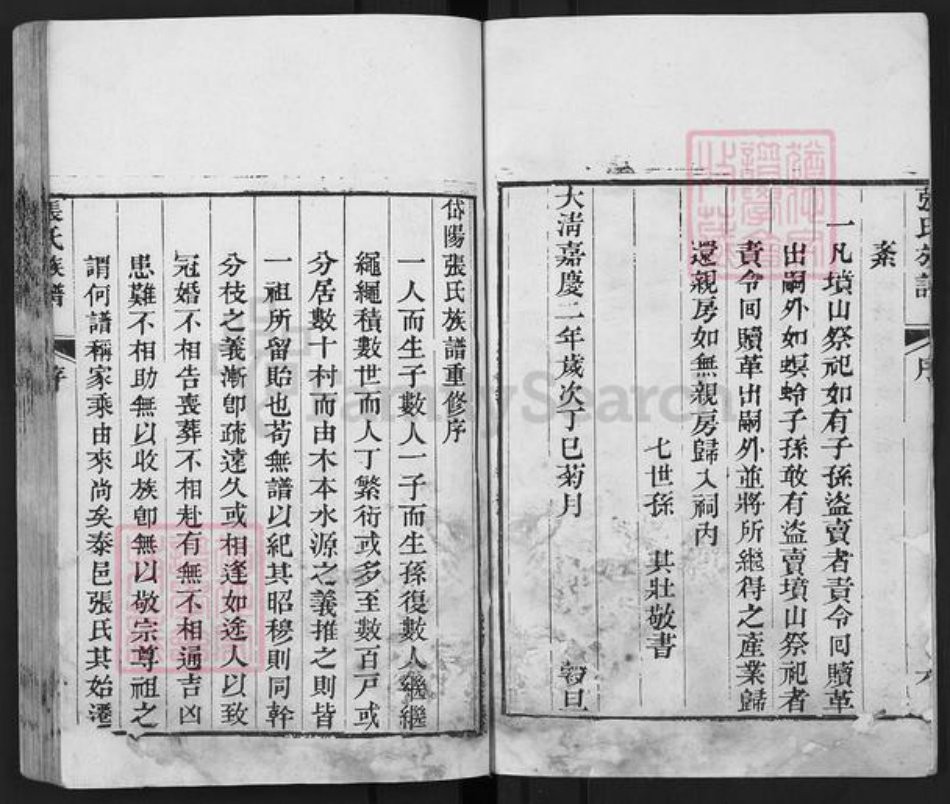 張氏族譜
序
六
紊
一凡墳山祭祀如有子孫盜賣者責令回贖革
出嗣外如螟蛉子孫敢有盜賣墳山祭祀者
責令回贖革出嗣外並將所繼得之產業歸
還親房如無親房歸入祠內
七世孫 其壯敬書
大淸嘉慶二年歲次丁巳菊月 穀旦
岱陽張氏族譜重修序
一人而生子數人一子而生孫復數人繼繼
繩繩積數世而人丁繁衍或多至數百戸或
分居數十村而由木本水源之義推之則皆
一祖所留貽也苟無譜以紀其昭穆則同幹
分枝之義漸卽疏遠久或相逢如途人以致
冠婚不相告喪葬不相赴有無不相通吉凶
患難不相助無以收族卽無以敬宗尊祖之
謂何譜稱家乘由來尚矣泰邑張氏其始遷
張氏族譜
序
FamilySearch